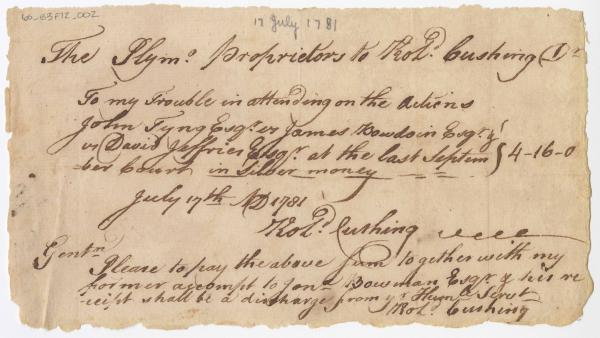 60-B3F12_002
17 July 1781
The Plymo Proprietors to Rold. Cushing Dr
To my Trouble in attending on the Actions
John Tyng Esqr. vs James Bowdoin Esqr. &
vs David Jeffries Esqr. at the last Septem
ber Court in Silver money 4-16-0
July 17th AD 1781
Rold. Cushing
Gentn
Please to pay the above Sum to gether with my
former accompt to Jona Bowman Esqr & his re
ceipt shall be a discharge from yr Hume Servt
Rold Cushing